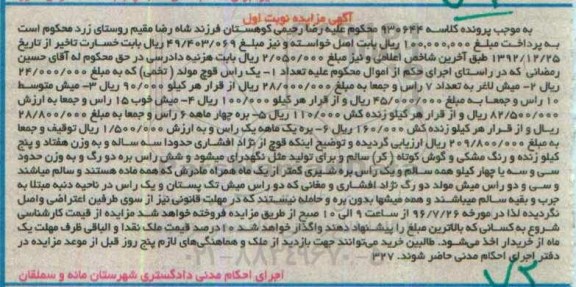 آگهی مزایده نوبت اول
به موجب پرونده کلاسه ۹۳۰۶۴۴ محکوم علیه رضا رجیمی کوهستان فرزند شاه رضا مقیم روستای زرد محکوم است
به پرداخت مبلغ ۱۰۰/۰۰۰/۰۰۰ ریال بابت اصل خواسته و نیز مبلغ ۴۹/۴۰۳/۰۶۹ ریال بابت خسارت تاخیر از تاریخ
۱۳۹۲/۱۲/۲۵ طبق آخرین شاخص اعلامی و نیز مبلغ ۲/۰۵۰/۰۰۰ ریال بابت هزینه دادرسی در حق محکوم له آقای حسین
رمضانی که در راستای اجرای حکم از اموال محکوم علیه تعداد ۱- یک راس قوچ مولد ( تخمی) که به مبلغ ۲۴/۰۰۰/۰۰۰
ریال ۲- میش لاغر به تعداد ۷ راس و جمعا به مبلغ ۲۸/۰۰۰/۰۰۰ ریال و از قرار هر کیلو ۹۰/۰۰۰ ریال ۳- میش متوسط
۱۰ راس و جمعا به مبلغ ۴۵/۰۰۰/۰۰۰ ریال و از قرار هر کیلو ۱۰۰/۰۰۰ ریال ۴- میش خوب ۱۵ راس و جمعا به ارزش
۸۲/۵۰۰/۰۰۰ ریال و از قرار هر کیلو زنده کش ۱۱۰/۰۰۰ ریال ۵- بره چهار ماهه ۶ راس و جمعا به مبلغ ۲۸/۸۰۰/۰۰۰
ریال و از قرار هر کیلو زنده کش ۱۶۰/۰۰۰ ریال ۶- بره یک ماهه یک راس و به ارزش ۱/۵۰۰/۰۰۰ ریال توقیف و جمعا
به مبلغ ۲۰۹/۸۰۰/۰۰۰ ریال ارزیابی گردیده و توضیح اینکه قوچ از نژاد افشاری حدودا سه ساله و به وزن هفتاد و پنج
کیلو زنده و رنگ مشکی و گوش کوتاه (کر) سالم و برای تولید مثل نگهداری میشود و شش راس بره دو رگ و به وزن حدود
سی و سه یا چهار کیلو همه سالم و یک راس بره شیری کمتر از یک ماه همراه مادرش که همه ماده هستند و سالم میباشند
و سی و دو راس میش مولد دو رگ نژاد افشاری و مغانی که دو راس میش تک پستان و یک راس در ناحیه دنبه مبتلا به
جرب و بقیه سالم میباشند و همه میشها بدون بره و حامله نیستند که در مهلت قانونی نیز از سوی طرفین اعتراضی واصل
نگردیده لذا در مورخه ۹۶/۷/۲۶ از ساعت ۹ الی ۱۰ صبح از طریق مزایده فروخته خواهد شد مزایده از قیمت کارشناسی
شروع به کسانی که بالاترین مبلغ را پیشنهاد دهند واگذار خواهد شد ۱۰ درصد قیمت ملک نقدا و الباقی ظرف مهلت یک
ماه از خریدار اخذ می‌شود. طالبین خرید می‌توانند جهت بازدید از ملک و هماهنگی‌های لازم پنج روز قبل از موعد مزایده در
دفتر اجرای احکام مدنی حاضر شوند. ۳۲۷
اجرای احکام مدنی دادگستری شهرستان مانه و سملقان